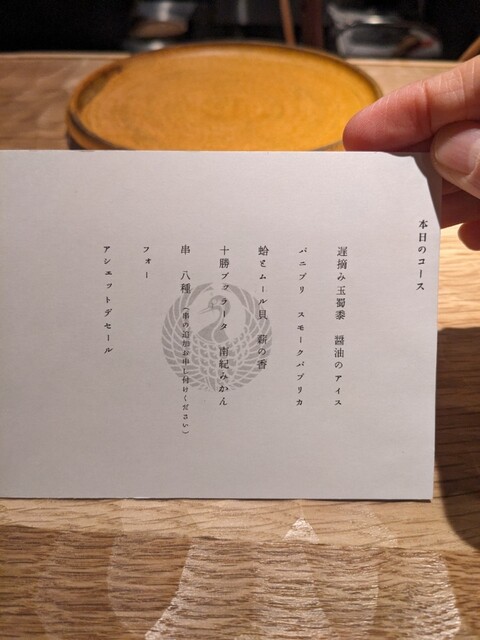 本日のコース
遅摘み玉蜀黍 醤油のアイス
パニプリ スモークパプリカ
蛤とムール貝 薪の香
十勝ブッラータ 南紀みかん
串 八種 (串の追加お申し付けください)
フォー
アシェットデセール